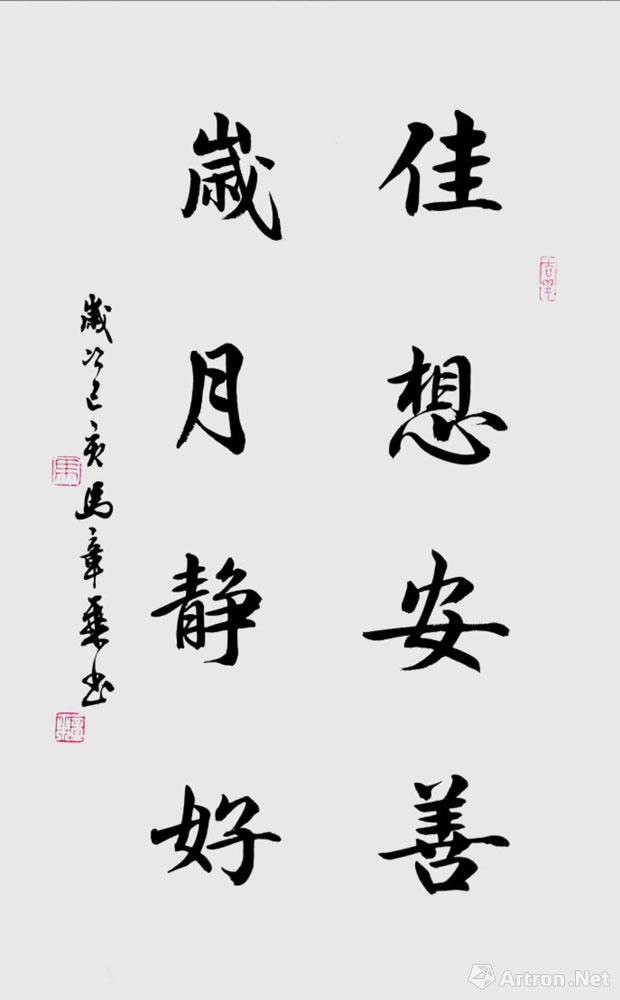 佳想安善
歲月静好
歲次己亥馬章乘书
Artron.Net